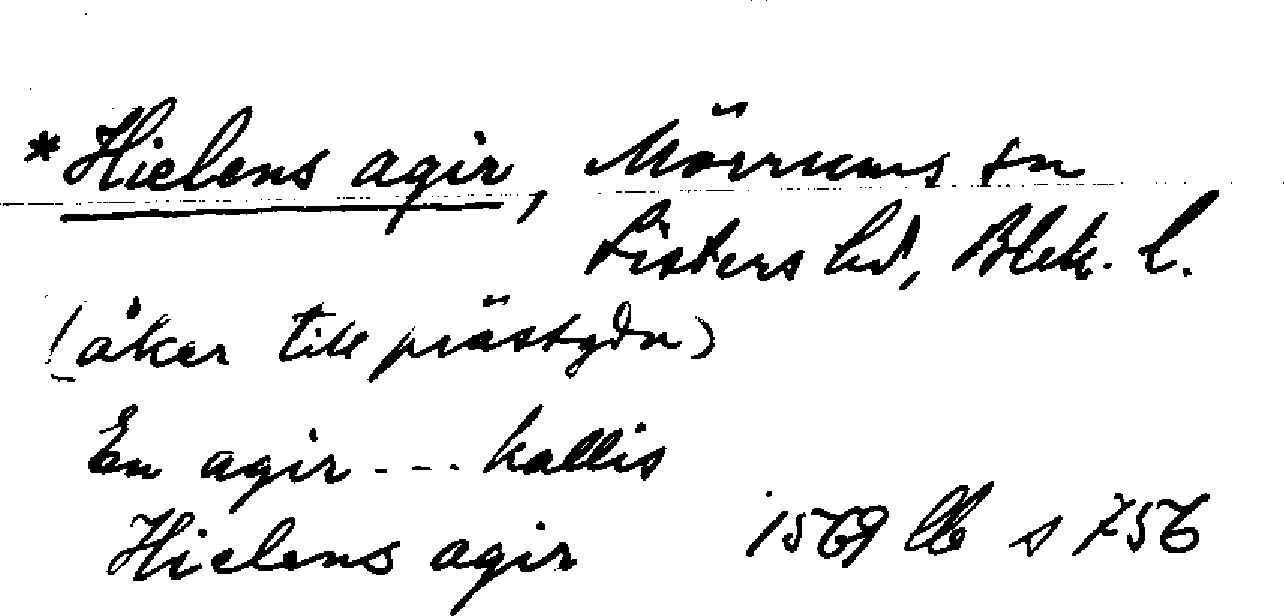 *Hielens agir, Mörrums sn
Listers hd, Blek. l.
(åker till prästgdn)
En agir --- kallis
Hielens agir 1569 lb s 756